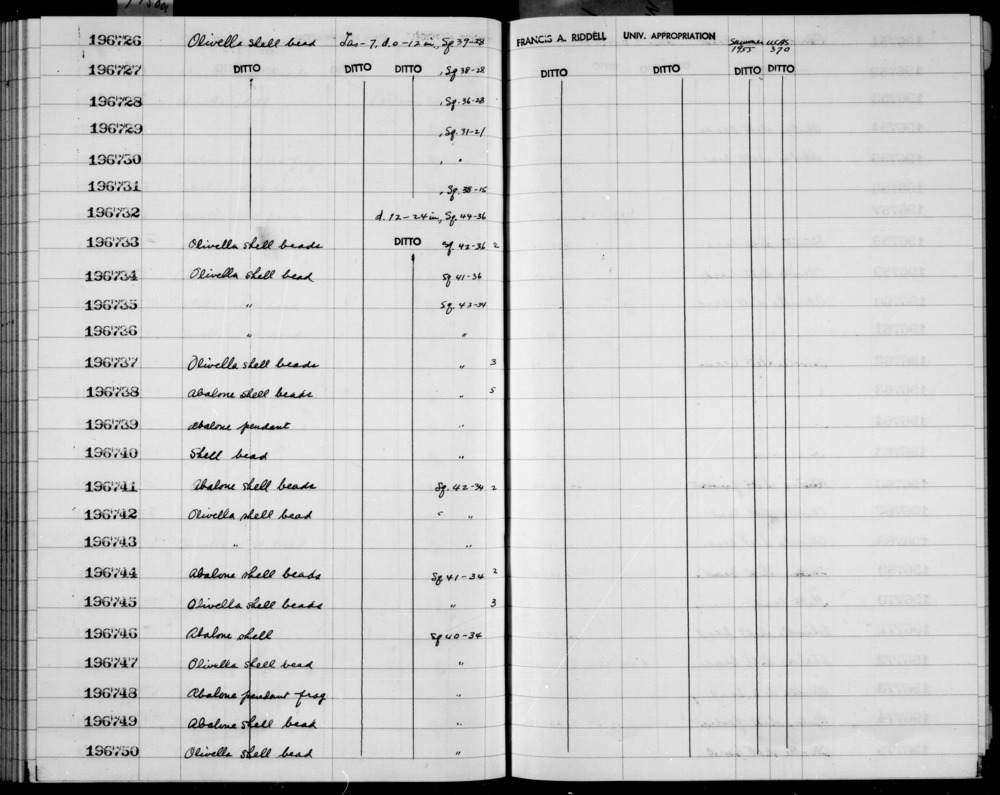 196726 Olivella shell bead Las-7, d. 0-12 in, Sq 39-28 FRANCIS A. RIDDELL UNIV. APPROPRIATION Summer 1955 UCAS 370
196727 DITTO DITTO DITTO , Sq 38-28 DITTO DITTO DITTO DITTO
196728 , Sq. 36-28
196729 , Sq. 31-21
196730 , "
196731 , Sq. 38-15
196732 d. 12-24 in, Sq. 44-36
196733 Olivella shell beads DITTO Sq. 42-36 2
196734 Olivella shell bead Sq 41-36
196735 " Sq. 43-34
196736 " "
196737 Olivella shell beads " 3
196738 Abalone shell beads " 5
196739 Abalone pendant "
196740 Shell bead "
196741 Abalone shell beads Sq. 42-34 2
196742 Olivella shell bead " "
196743 " "
196744 Abalone shell beads Sq. 41-34 2
196745 Olivella shell beads " 3
196746 Abalone shell Sq 40-34
196747 Olivella shell bead "
196748 Abalone pendant frag "
196749 Abalone shell bead "
196750 Olivella shell bead "